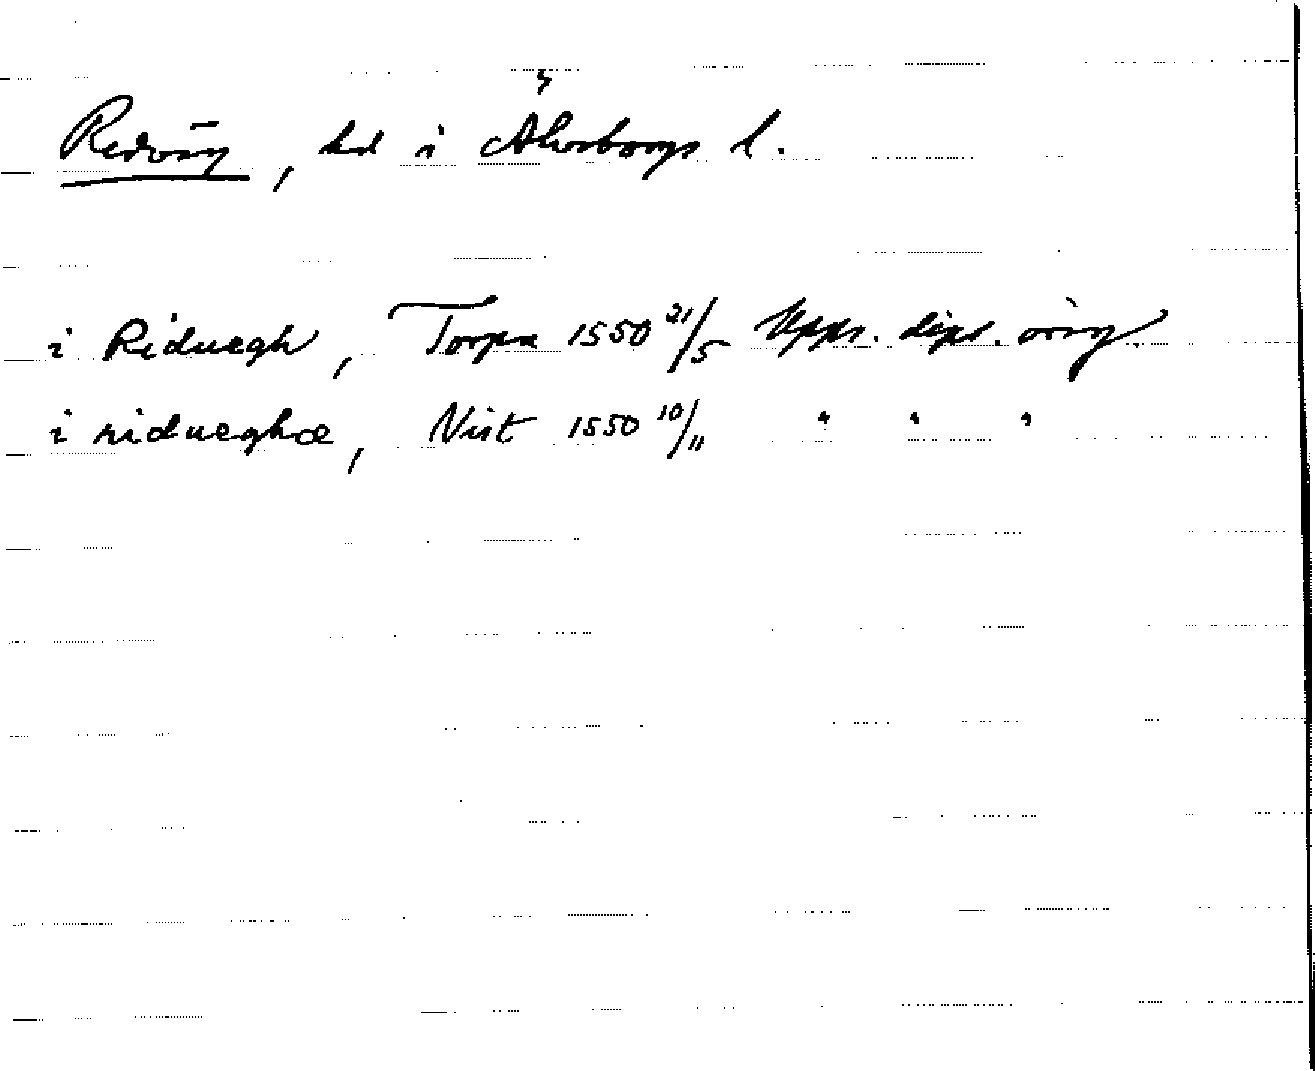 Redväg, hd i Älvsborgs l.
i Riduegh, Torpa 1550 21/5 Upps. dipl. orig.
i ridueghæ, Vist 1550 10/11 " " "